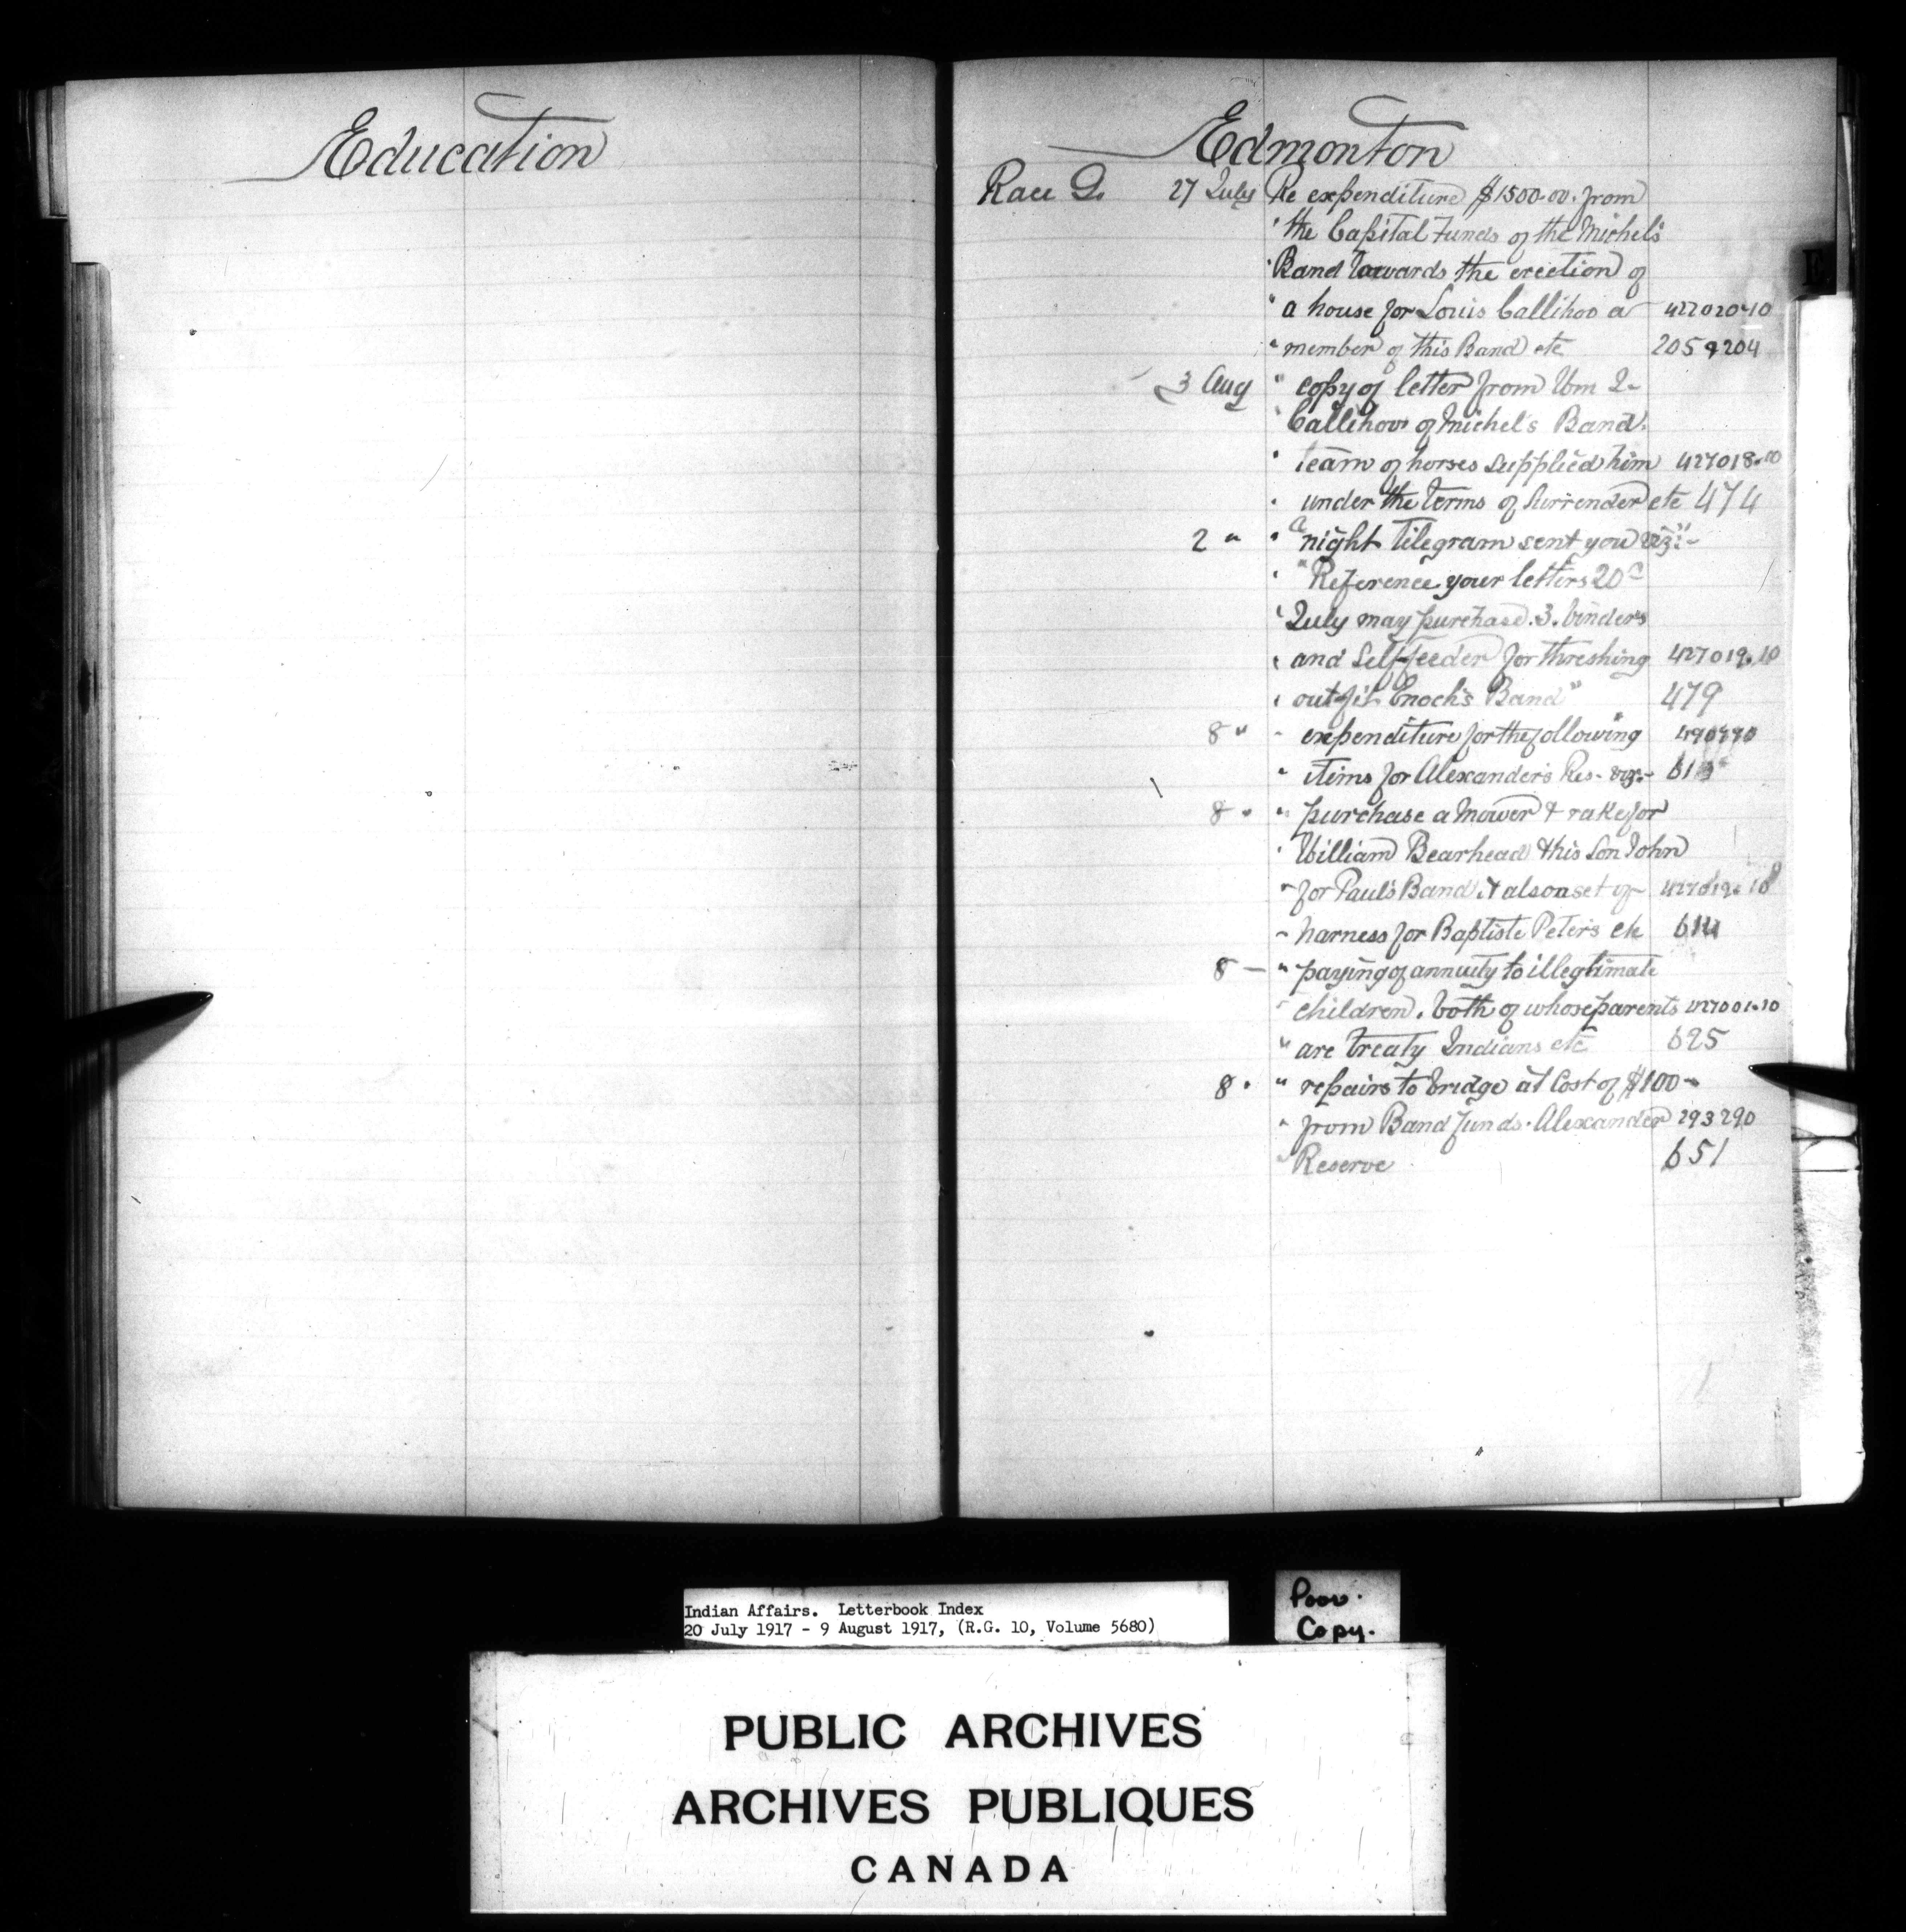 Education
Edmonton
Race G. 27 July Re expenditure $1500.00. from
" the Capital Funds of the Michel's
" Band towards the erection of
" a house for Louis Callihoo a 427020-10
" member of this Band etc 205 & 204
3 Aug " copy of letter from Wm L-
" Callihoo of Michel's Band.
" team of horses supplied him 427018-10
" under the terms of Surrender etc 474
2 " " a night Telegram sent you viz:-
" "Reference your letters 20
" July may purchase 3. binders
" and Self-feeder for threshing 427019.10
" out-fit Enoch's Band" 479
8 " " expenditure for the following
" items for Alexander's Res- viz:-
8 " " purchase a Mower & rake for
" William Bearhead & his Son John
" for Paul's Band & also a set of 427019-10
" harness for Baptiste Peter's etc 614
8 - " paying of annuity to illegtimate
" children. both of whose parents 427001-10
" are treaty Indians etc 625
8 " " repairs to bridge at Cost of $100-
" from Band funds. Alexander 293290
" Reserve 651
E
Indian Affairs. Letterbook Index
20 July 1917 - 9 August 1917, (R.G. 10, Volume 5680)
Poor.
Copy.
PUBLIC ARCHIVES
ARCHIVES PUBLIQUES
CANADA